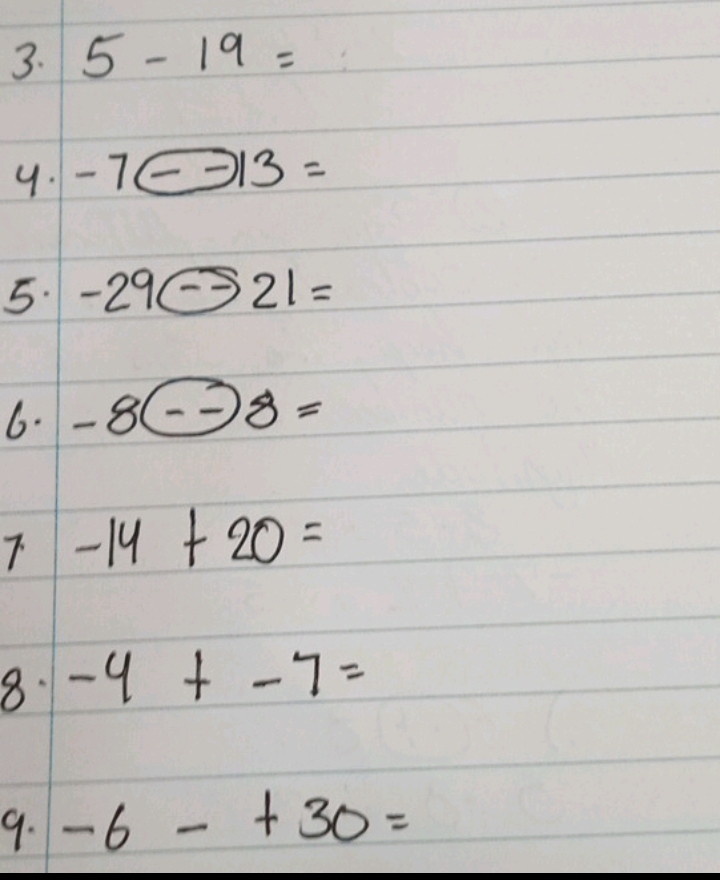 3. 5 - 19 =
4. -7 - -13 =
5. -29 - -21 =
6. -8 - -8 =
7. -14 + 20 =
8. -4 + -7 =
9. -6 - +30 =